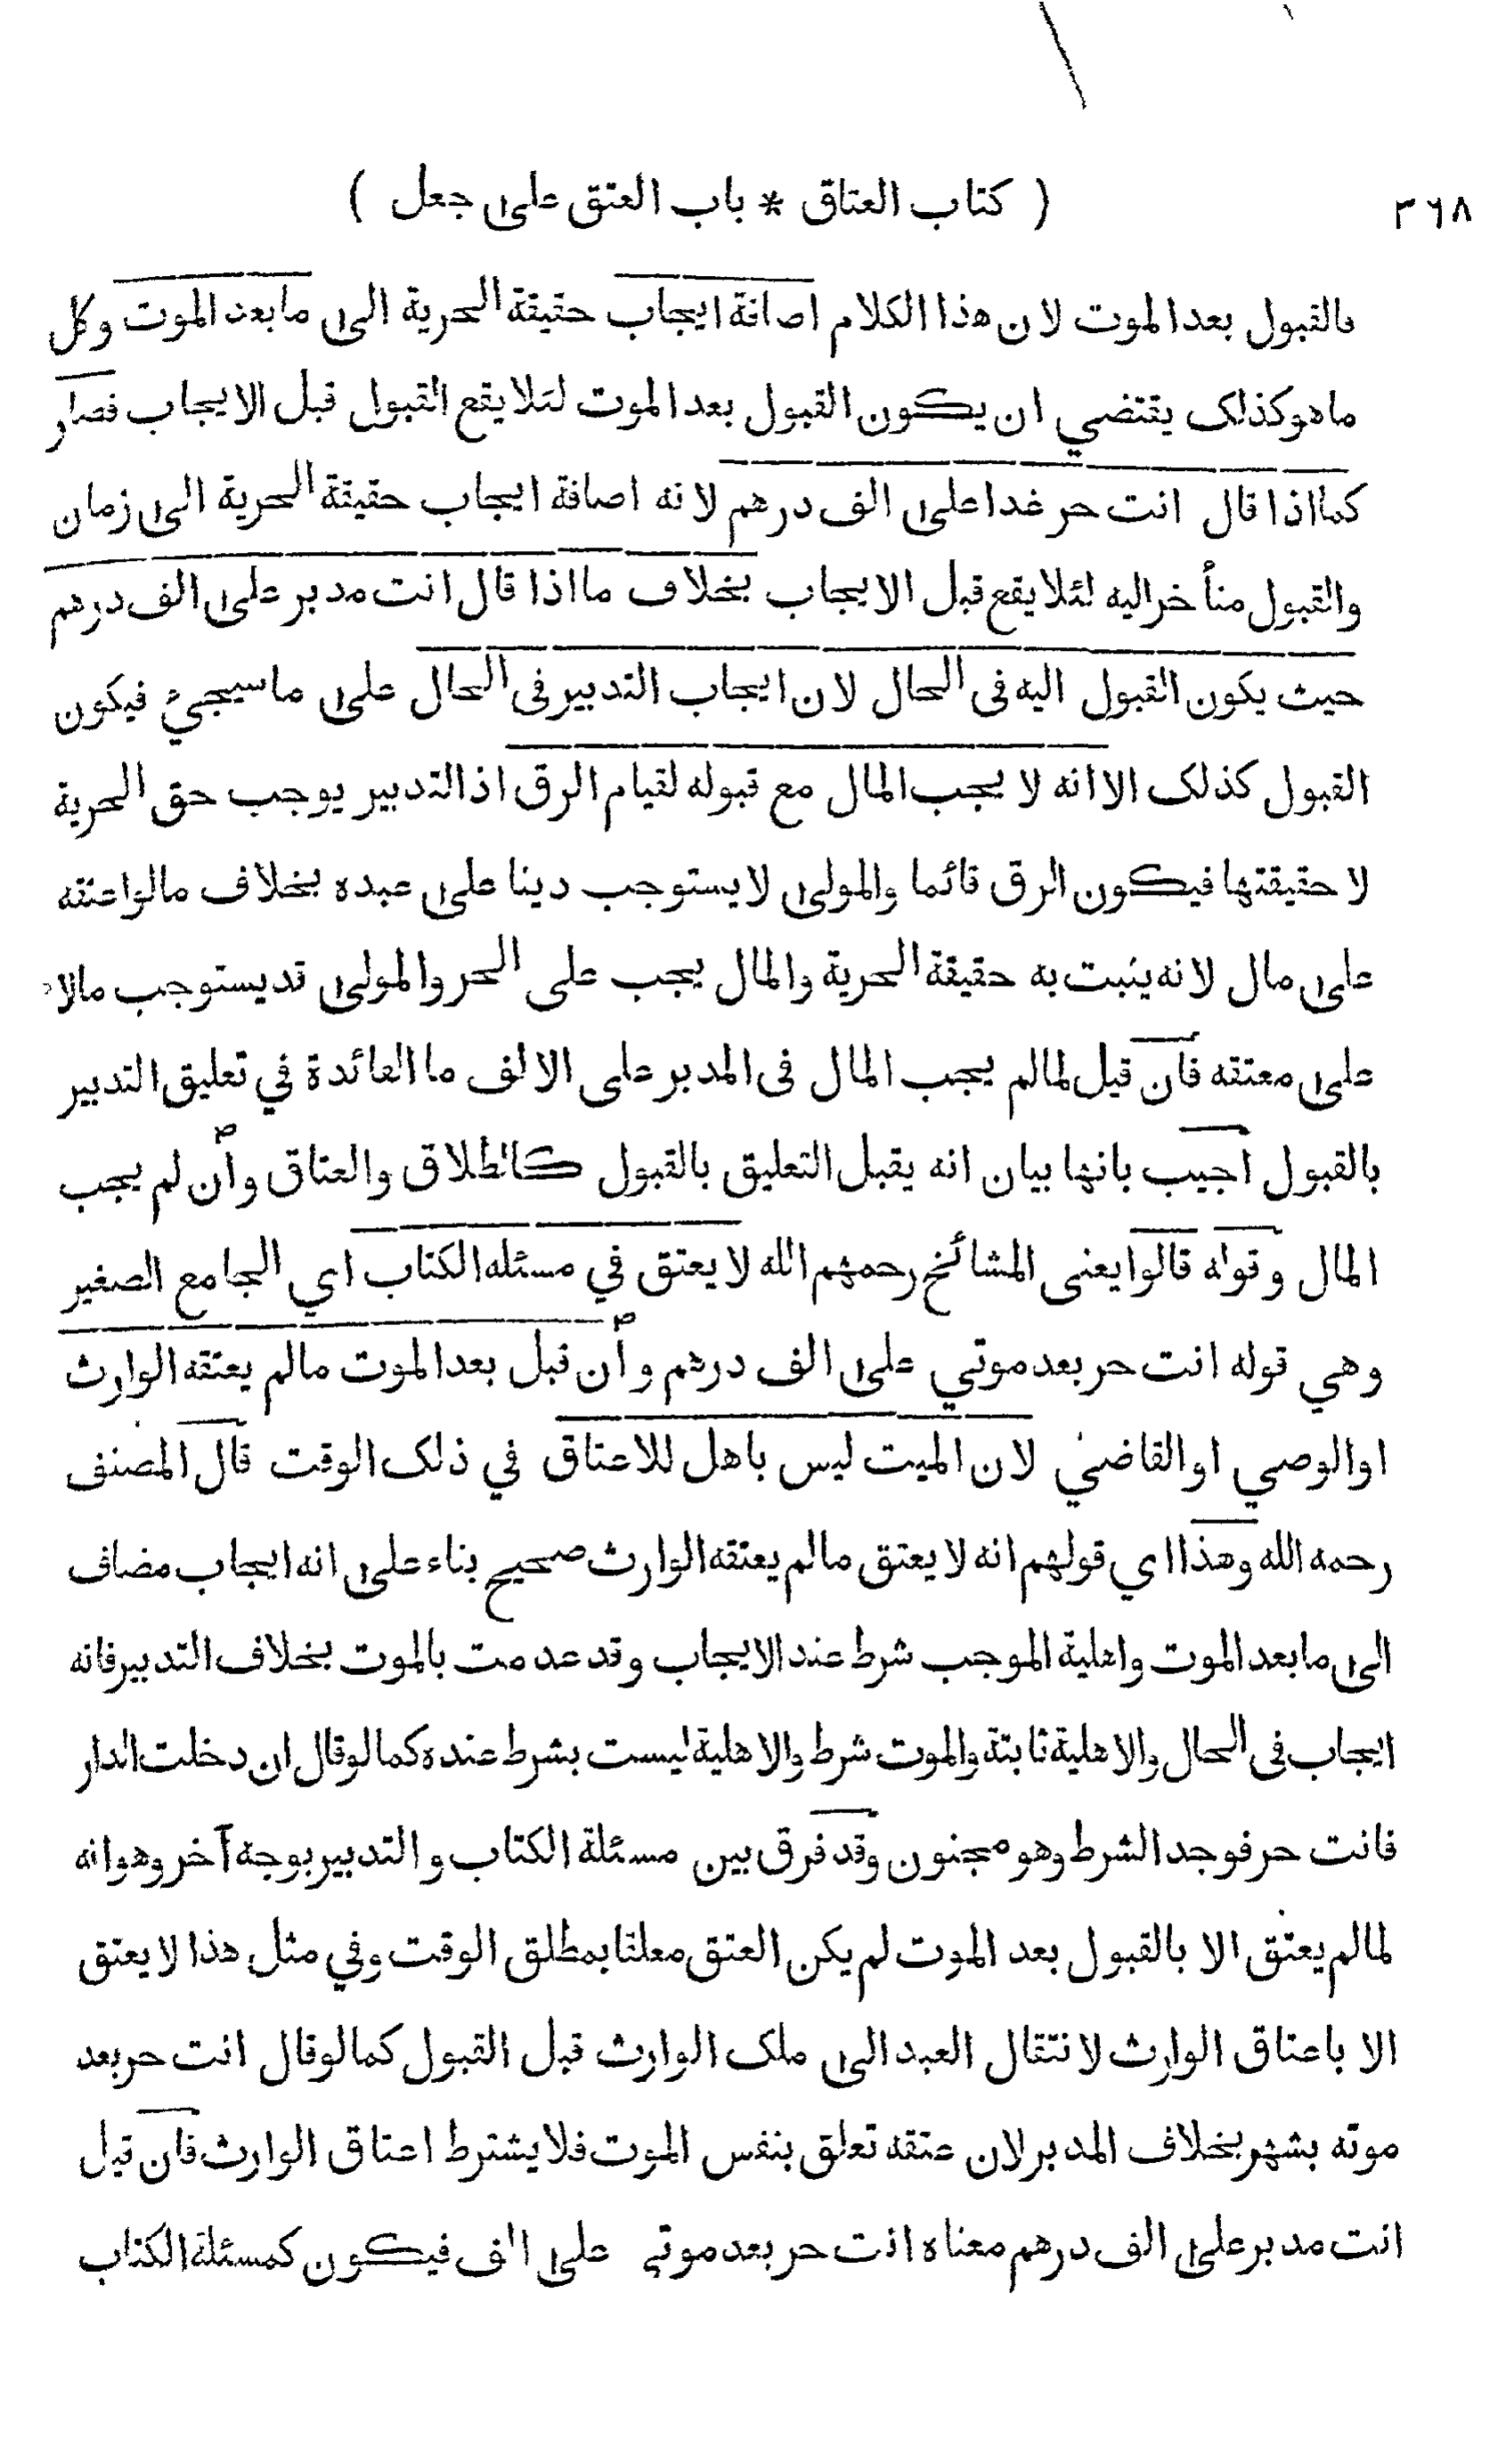 ٣٦٨ ( كتاب العتاق * باب العتق على جعل )
بالقبول بعد الموت لان هذا الكلام اضافة ايجاب حقيقة الحرية الى ما بعد الموت وكل
ما هو كذلك يقتضي ان يكون القبول بعد الموت لئلا يقع القبول قبل الايجاب فصار
كما اذا قال انت حر غدا على الف درهم لانه اضافة ايجاب حقيقة الحرية الى زمان
والقبول متأخر اليه لئلا يقع قبل الايجاب بخلاف ما اذا قال انت مدبر على الف درهم
حيث يكون القبول اليه فى الحال لان ايجاب التدبير فى الحال على ما سيجيئ فيكون
القبول كذلك الا انه لا يجب المال مع قبوله لقيام الرق اذ التدبير يوجب حق الحرية
لا حقيقتها فيكون الرق قائما والمولى لا يستوجب دينا على عبده بخلاف ما لو اعتقه
على مال لانه يثبت به حقيقة الحرية والمال يجب على الحر والمولى قد يستوجب مالا
على معتقه فان قيل لما لم يجب المال فى المدبر على الالف ما الفائدة في تعليق التدبير
بالقبول اجيب بانها بيان انه يقبل التعليق بالقبول كالطلاق والعتاق وأن لم يجب
المال وقوله قالوا يعنى المشائخ رحمهم الله لا يعتق في مسئله الكتاب اي الجامع الصغير
وهي قوله انت حر بعد موتي على الف درهم وأن قبل بعد الموت مالم يعتقه الوارث
او الوصي او القاضي لان الميت ليس باهل للاعتاق في ذلك الوقت قال المصنف
رحمه الله وهذا اي قولهم انه لا يعتق مالم يعتقه الوارث صحيح بناء على انه ايجاب مضاف
الى ما بعد الموت واهلية الموجب شرط عند الايجاب وقد عدمت بالموت بخلاف التدبير فانه
ايجاب فى الحال والاهلية ثابتة والموت شرط والاهلية ليست بشرط عنده كما لو قال ان دخلت الدار
فانت حر فوجد الشرط وهو مجنون وقد فرق بين مسئلة الكتاب والتدبير بوجه آخر وهو انه
لما لم يعتق الا بالقبول بعد الموت لم يكن العتق معلقا بمطلق الوقت وفي مثل هذا لا يعتق
الا باعتاق الوارث لانتقال العبد الى ملك الوارث قبل القبول كما لو قال انت حر بعد
موته بشهر بخلاف المدبر لان عتقه تعلق بنفس الموت فلا يشترط اعتاق الوارث فان قيل
انت مدبر على الف درهم معناه انت حر بعد موتي على الف فيكون كمسئلة الكتاب